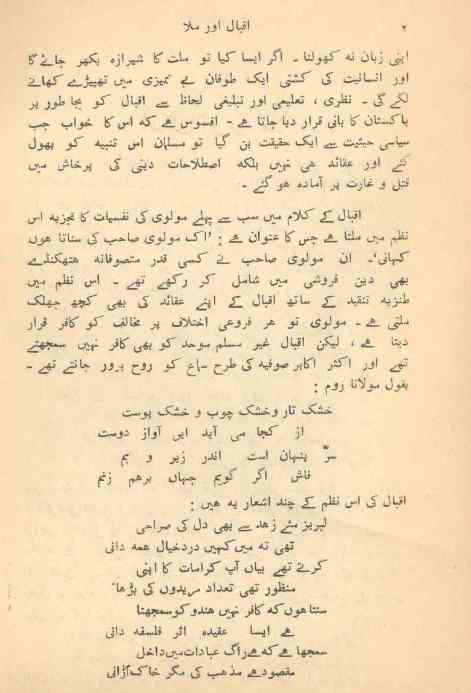 ۲
اقبال اور ملا
اپنی زبان نہ کھولنا ۔ اگر ایسا کیا تو ملت کا شیرازہ بکھر جائے گا
اور انسانیت کی کشتی ایک طوفان بے تمیزی میں تھپیڑے کھانے
لگے گی ۔ نظری ، تعلیمی اور تبلیغی لحاظ سے اقبال کو بجا طور پر
پاکستان کا بانی قرار دیا جاتا ہے ۔ افسوس ہے کہ اس کا خواب جب
سیاسی حیثیت سے ایک حقیقت بن گیا تو مسلمان اس تنبیہ کو بھول
گئے اور عقائد ہی نہیں بلکہ اصطلاحات دینی کی پرخاش میں
قتل و غارت پر آمادہ ہو گئے ۔
اقبال کے کلام میں سب سے پہلے مولوی کی نفسیات کا تجزیہ اس
نظم میں ملتا ہے جس کا عنوان ہے : ’اک مولوی صاحب کی سناتا ہوں
کہانی‘۔ ان مولوی صاحب نے کسی قدر متصوفانہ ہتھکنڈے
بھی دین فروشی میں شامل کر رکھے تھے ۔ اس نظم میں
طنزیہ تنقید کے ساتھ اقبال کے اپنے عقائد کی بھی کچھ جھلک
ملتی ہے ۔ مولوی تو ہر فروعی اختلاف پر مخالف کو کافر قرار
دیتا ہے ، لیکن اقبال غیر مسلم موحد کو بھی کافر نہیں سمجھتے
تھے اور اکثر اکابر صوفیہ کی طرح سماع کو روح پرور جانتے تھے ۔
بقول مولانا روم :
خشک تار و خشک چوب و خشک پوست
از کجا می آید ایں آواز دوست
سرّ پنہان است اندر زیر و بم
فاش اگر گویم جہاں برہم زنم
اقبال کی اس نظم کے چند اشعار یہ ہیں :
لبریز مئے زہد سے بھی دل کی صراحی
تھی تہ میں کہیں درد خیال ہمہ دانی
کرتے تھے بیاں آپ کرامات کا اپنی
منظور تھی تعداد مریدوں کی بڑھانی
سنتا ہوں کہ کافر نہیں ہندو کو سمجھتا
ہے ایسا عقیدہ اثر فلسفہ دانی
سمجھا ہے کہ ہے راگ عبادات میں داخل
مقصود ہے مذہب کی مگر خاک اڑانی